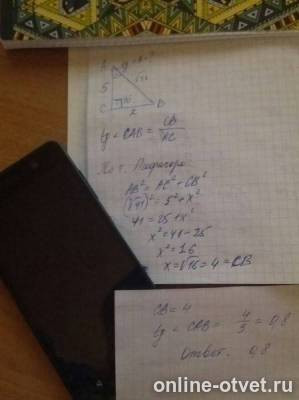 A
5
√41
C
x
B
tg = CAB = CB/AC
По т. Пифагора
AB² = AC² + CB²
(√41)² = 5² + x²
41 = 25 + x²
x² = 41 - 25
x² = 16
x = √16 = 4 = CB
CB = 4
tg = CAB = 4/5 = 0,8
Ответ. 0,8
online-otvet.ru